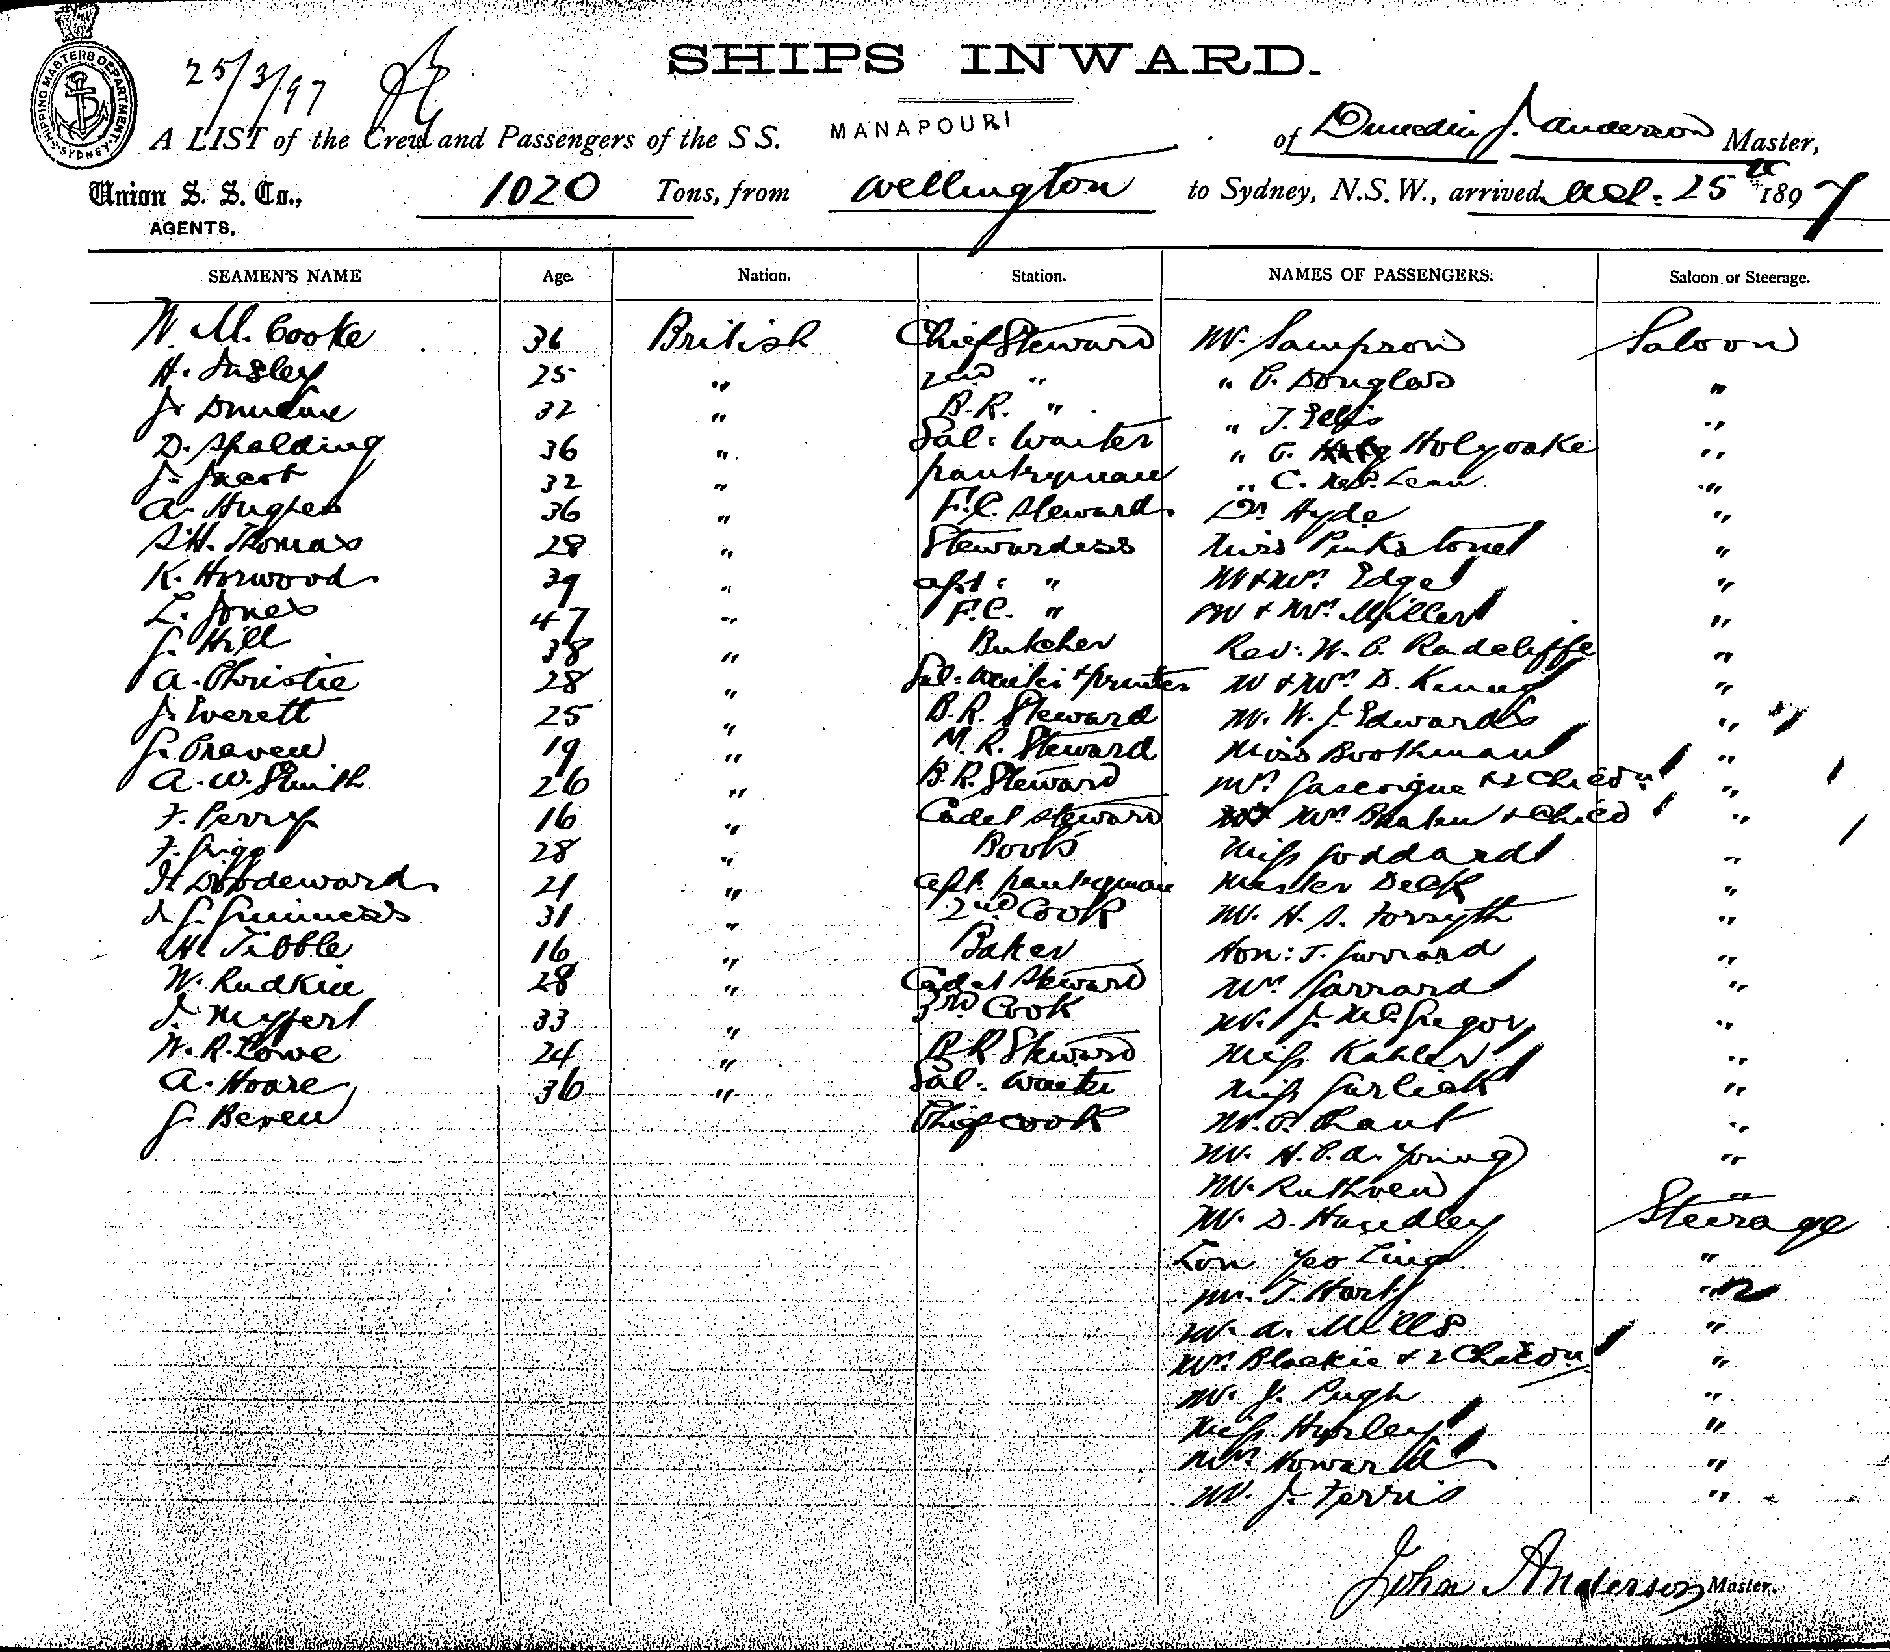 SHIPPING MASTERS DEPARTMENT SYDNEY
25/3/97
SHIPS INWARD.
A LIST of the Crew and Passengers of the S S. MANAPOURI of Dunedin J. Anderson Master,
Union S. S. Co., 1020 Tons, from Wellington to Sydney, N.S.W., arrived 25th 1897
AGENTS.
SEAMEN'S NAME Age Nation. Station. NAMES OF PASSENGERS. Saloon or Steerage.
W. M. Cooke 36 British Chief Steward Mr. Sampson Saloon
H. 25 " 2nd " " C. Douglas "
J. 32 " B.R. " " J. Ellis "
D. Spalding 36 " Sal: Waiter " G. Holyoake "
J. Jacob 32 " pantryman " C. "
A. Hughes 36 " F.C. Steward. Dr Hyde "
S.H. Thomas 28 " Stewardess Miss Pinkstone "
K. Horwood 39 " aft: " Mr & Mrs Edge "
L. Jones 47 " F.C. " Mr & Mrs Miller "
G. Hill 38 " Butcher Rev: W. C. Radcliffe "
A. Christie 28 " Sal: Waiter & printer Mr & Mrs D. "
J. Everett 25 " B.R. Steward Mr. W. J. Edwards "
G. Craven 19 " M.R. Steward Miss Boothman "
A. W. Smith 26 " B.R. Steward Mrs Gascoigne & 2 Childn "
F. Perry 16 " Cadet Steward Mrs & Child "
F. Grigg 28 " Boots Miss Goddard "
Woodeward 21 " aft. pantryman Master Deck "
J. G. Guinness 31 " 2nd Cook Mr. H. S. Forsyth "
H. Tibble 16 " Baker Hon: J. Garrard "
W. Rudkin 28 " Cadet Steward Mrs Garrard "
J. 33 " 3rd Cook Mr. J. McGregor "
W. R. Lowe 24 " B.R. Steward Miss Kahler "
A. Hoare 36 " Sal: Waiter Miss Garlick "
G. Beven Chief Cook Mr. "
Mr. H. C. A. Young "
Mr. Ruthven "
Mr. D. Handley Steerage
Lon Yeo Ling "
Mr. J. Hart "
Mr. A. Mills "
Mrs Blackie & 2 Childn "
Mr. J. Pugh "
Miss Hurley "
Mrs Howard "
Mr. J. Ferris "
John Anderson Master.